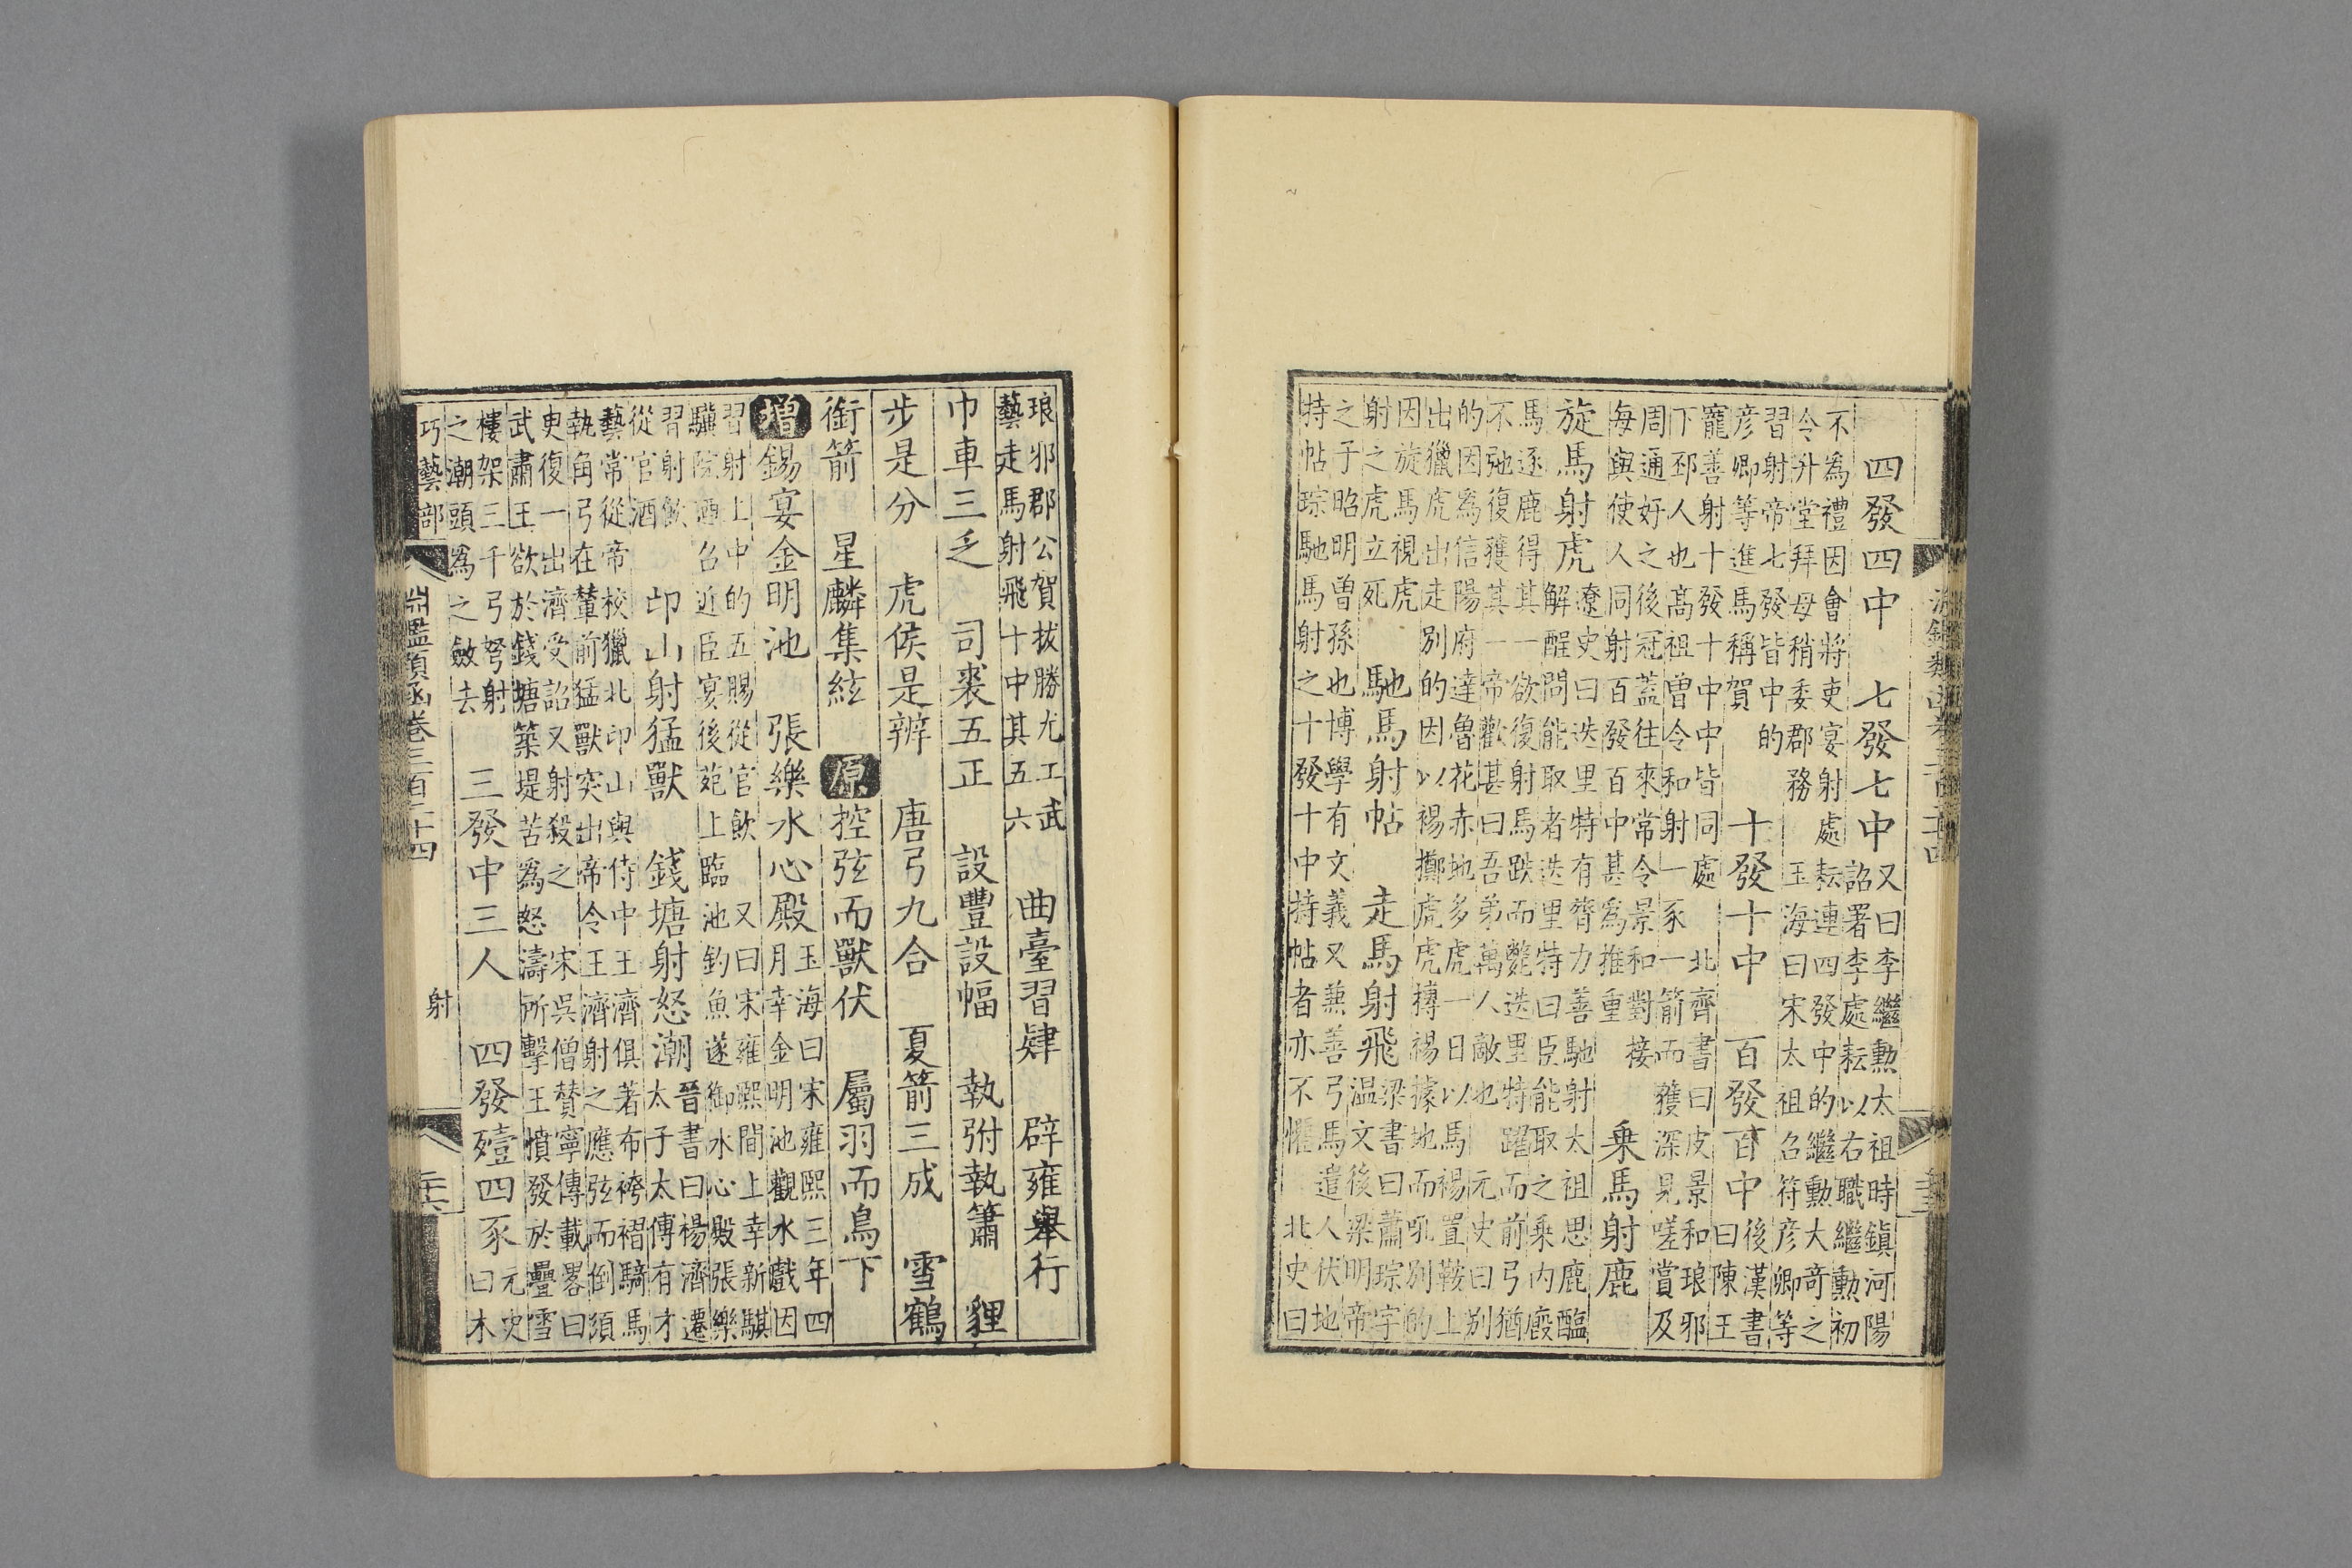 四發四中　七發七中
又曰李繼勲太祖時鎮河陽
詔署李處耘以右職繼勲初
不為禮因會將吏宴射處耘連四發中的繼勲大竒之
令升堂拜母稍委郡務　玉海曰宋太祖召符彦卿等
習射帝七發皆中的
彦卿等進馬稱賀
十發十中　百發百中
後漢書
曰陳王
寵善射十發十中中皆同處　北齊書曰皮景和琅邪
下邳人也髙祖曽令和射一豕一箭而獲深見嗟賞及
周通好之後冠蓋往來常令景和對接
海與使人同射百發百中甚為推重
乗馬射鹿
旋馬射虎
遼史曰迭里特有膂力善馳射太祖思鹿醢
解酲問能取者迭里特曰臣能取之乗内廏
馬逐鹿得其一欲復射馬跌而斃迭里特躍而前弓猶
不弛復獲其一帝歡甚曰吾弟萬人敵也　元史曰别
的因為信陽府達魯花赤地多虎一日以馬裼置鞍上
出獵虎出走别的因以裼擲虎虎搏裼據地而吼别的
因旋馬視虎
射之虎立死
馳馬射帖　走馬射飛
梁書曰蕭琮字
温文後梁明帝
之子昭明曽孫也博學有文義又兼善弓馬遣人伏地
持帖琮馳馬射之十發十中持帖者亦不懼　北史曰
琅邪郡公賀拔勝尤工武
藝走馬射飛十中其五六
曲臺習肄　辟雍舉行
巾車三乏　司裘五正　設豐設幅　執弣執簫　貍
步是分　虎侯是辨　唐弓九合　夏箭三成　雪鶴
銜箭　星麟集絃　原控弦而獸伏　屬羽而鳥下
增錫宴金明池　張樂水心殿
玉海曰宋雍熙三年四
月幸金明池觀水戲因
習射上中的五賜從官飲　又曰宋雍熙間上幸新騏
驥院酒召近臣宴後苑上臨池釣魚遂御水心殿張樂
習射飲
從官酒
邙山射猛獸　錢塘射怒潮
晉書曰楊濟遷
太子太傅有才
藝常從帝校獵北邙山與侍中王濟俱著布袴褶騎馬
執角弓在輦前猛獸突出帝令王濟射之應弦而倒須
臾復一出濟受詔又射殺之　宋吳僧贊寧傳載畧曰
武肅王欲於錢塘築堤苦為怒濤所擊王憤發於疊雪
樓架三千弓弩射
之潮頭為之斂去
三發中三人　四發殪四豕
元史
曰木
巧藝部　淵鑑類函卷三百二十四　射